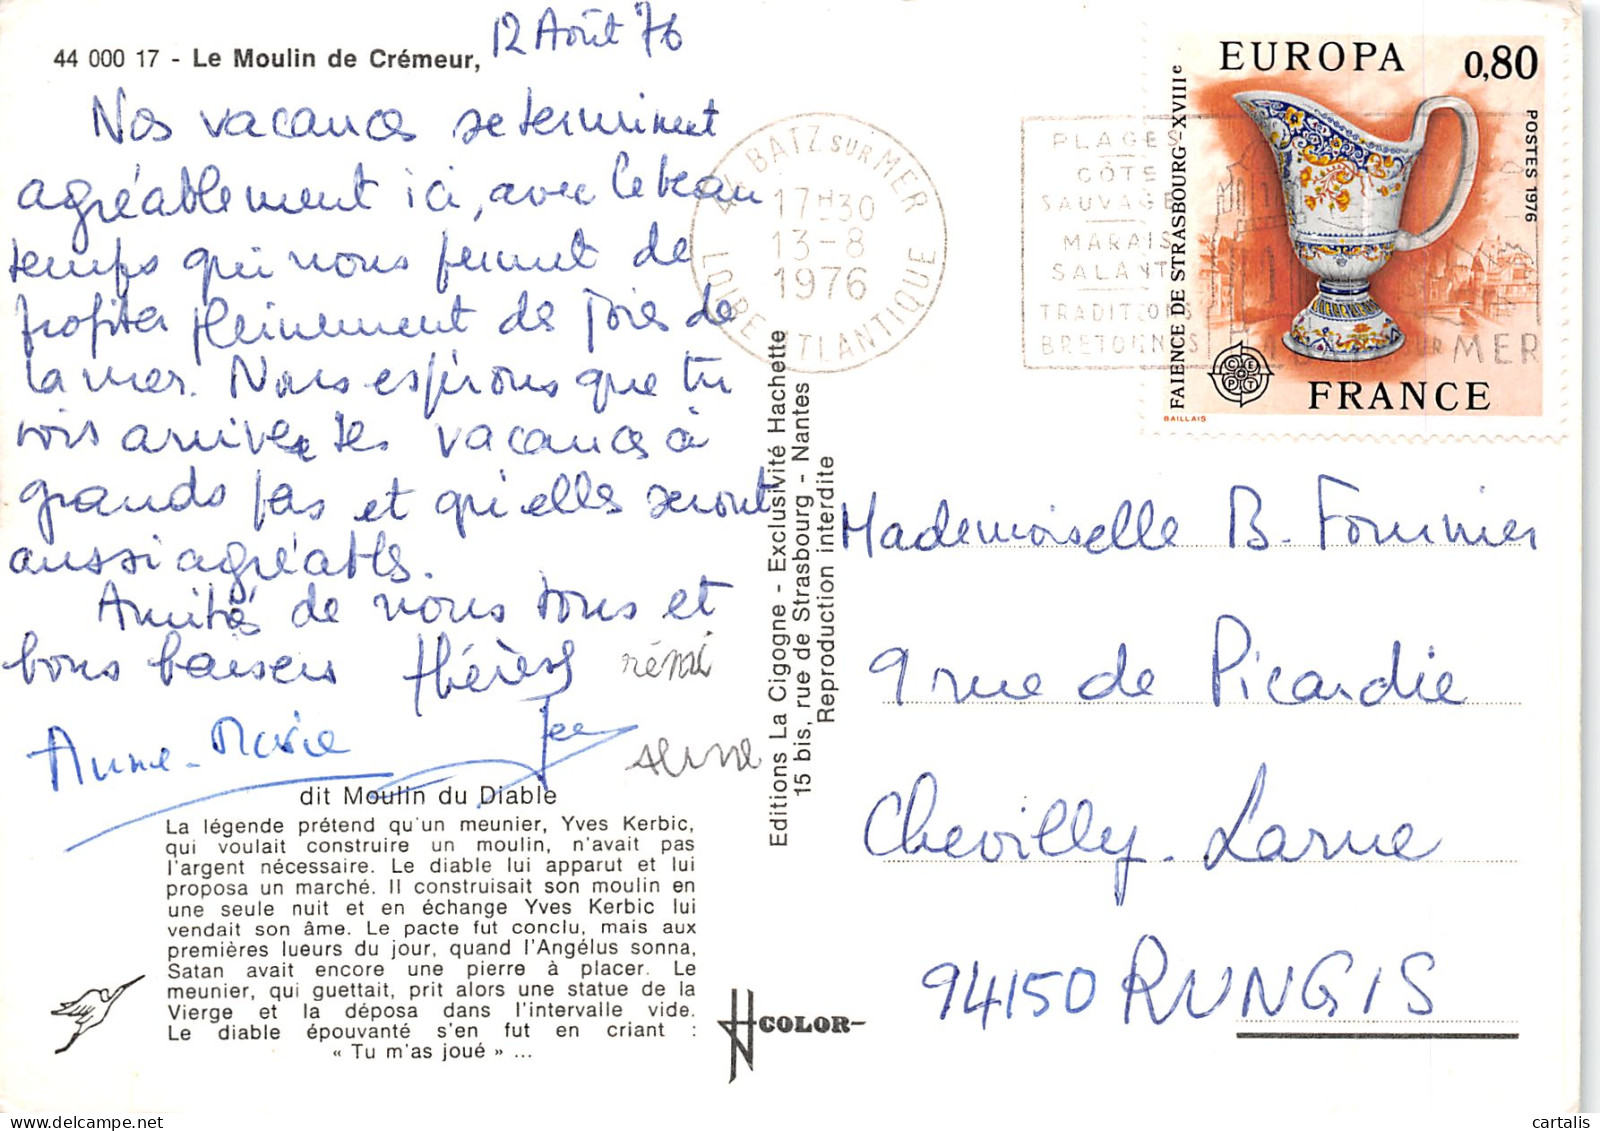 44 000 17 - Le Moulin de Crémeur,
12 Août 76
Nos vacances se terminent
agréablement ici, avec le beau
temps qui nous permet de
profiter pleinement des joies de
la mer. Nous espérons que tu
vois arriver tes vacances à
grands pas et qu'elles seront
aussi agréables.
Amitiés de nous tous et
bons baisers Thérèse rémi
Anne-Marie
dit Moulin du Diable
La légende prétend qu'un meunier, Yves Kerbic,
qui voulait construire un moulin, n'avait pas
l'argent nécessaire. Le diable lui apparut et lui
proposa un marché. Il construisait son moulin en
une seule nuit et en échange Yves Kerbic lui
vendait son âme. Le pacte fut conclu, mais aux
premières lueurs du jour, quand l'Angélus sonna,
Satan avait encore une pierre à placer. Le
meunier, qui guettait, prit alors une statue de la
Vierge et la déposa dans l'intervalle vide.
Le diable épouvanté s'en fut en criant :
« Tu m'as joué » ...
Editions La Cigogne - Exclusivité Hachette
15 bis, rue de Strasbourg - Nantes
Reproduction interdite
COLOR
44 BATZ SUR MER
17H30
13-8
1976
LOIRE ATLANTIQUE
PLAGES
CÔTE
SAUVAGE
MARAIS
SALANTS
TRADITIONS
BRETONNES
SUR MER
EUROPA 0,80
POSTES 1976
FAIENCE DE STRASBOURG-XVIIIe
CEPT
FRANCE
BAILLAIS
Mademoiselle B. Fournier
9 rue de Picardie
Chevilly-Larue
94150 RUNGIS
cartalis